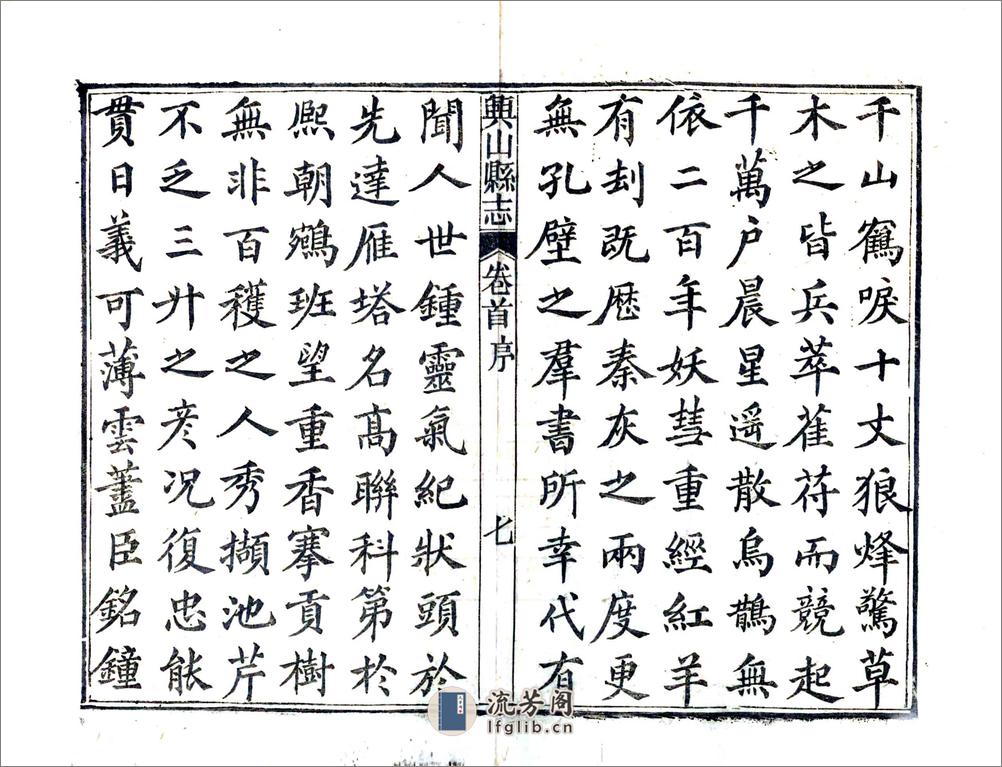 千山鶴唳十丈狼烽驚草
木之皆兵萃萑苻而競起
千萬户晨星遥散烏鵲無
依二百年妖彗重經紅羊
有刦既歷秦灰之兩度更
無孔壁之羣書所幸代有
興山縣志 卷首序 七
聞人世鍾靈氣紀狀頭於
先達雁塔名高聯科第於
熙朝鵷班望重香搴貢樹
無非百穫之人秀擷池芹
不乏三升之彥况復忠能
貫日義可薄雲藎臣銘鐘
流芳阁
lfglib.cn